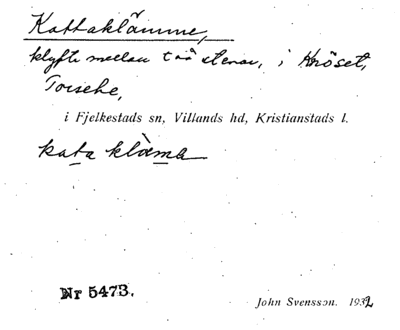 Kattaklämme,
klyfta mellan två stenar, i Knöset,
Torsebe,
i Fjelkestads sn, Villands hd, Kristianstads l.
kata klama
Nr 5473.
John Svensson. 1932